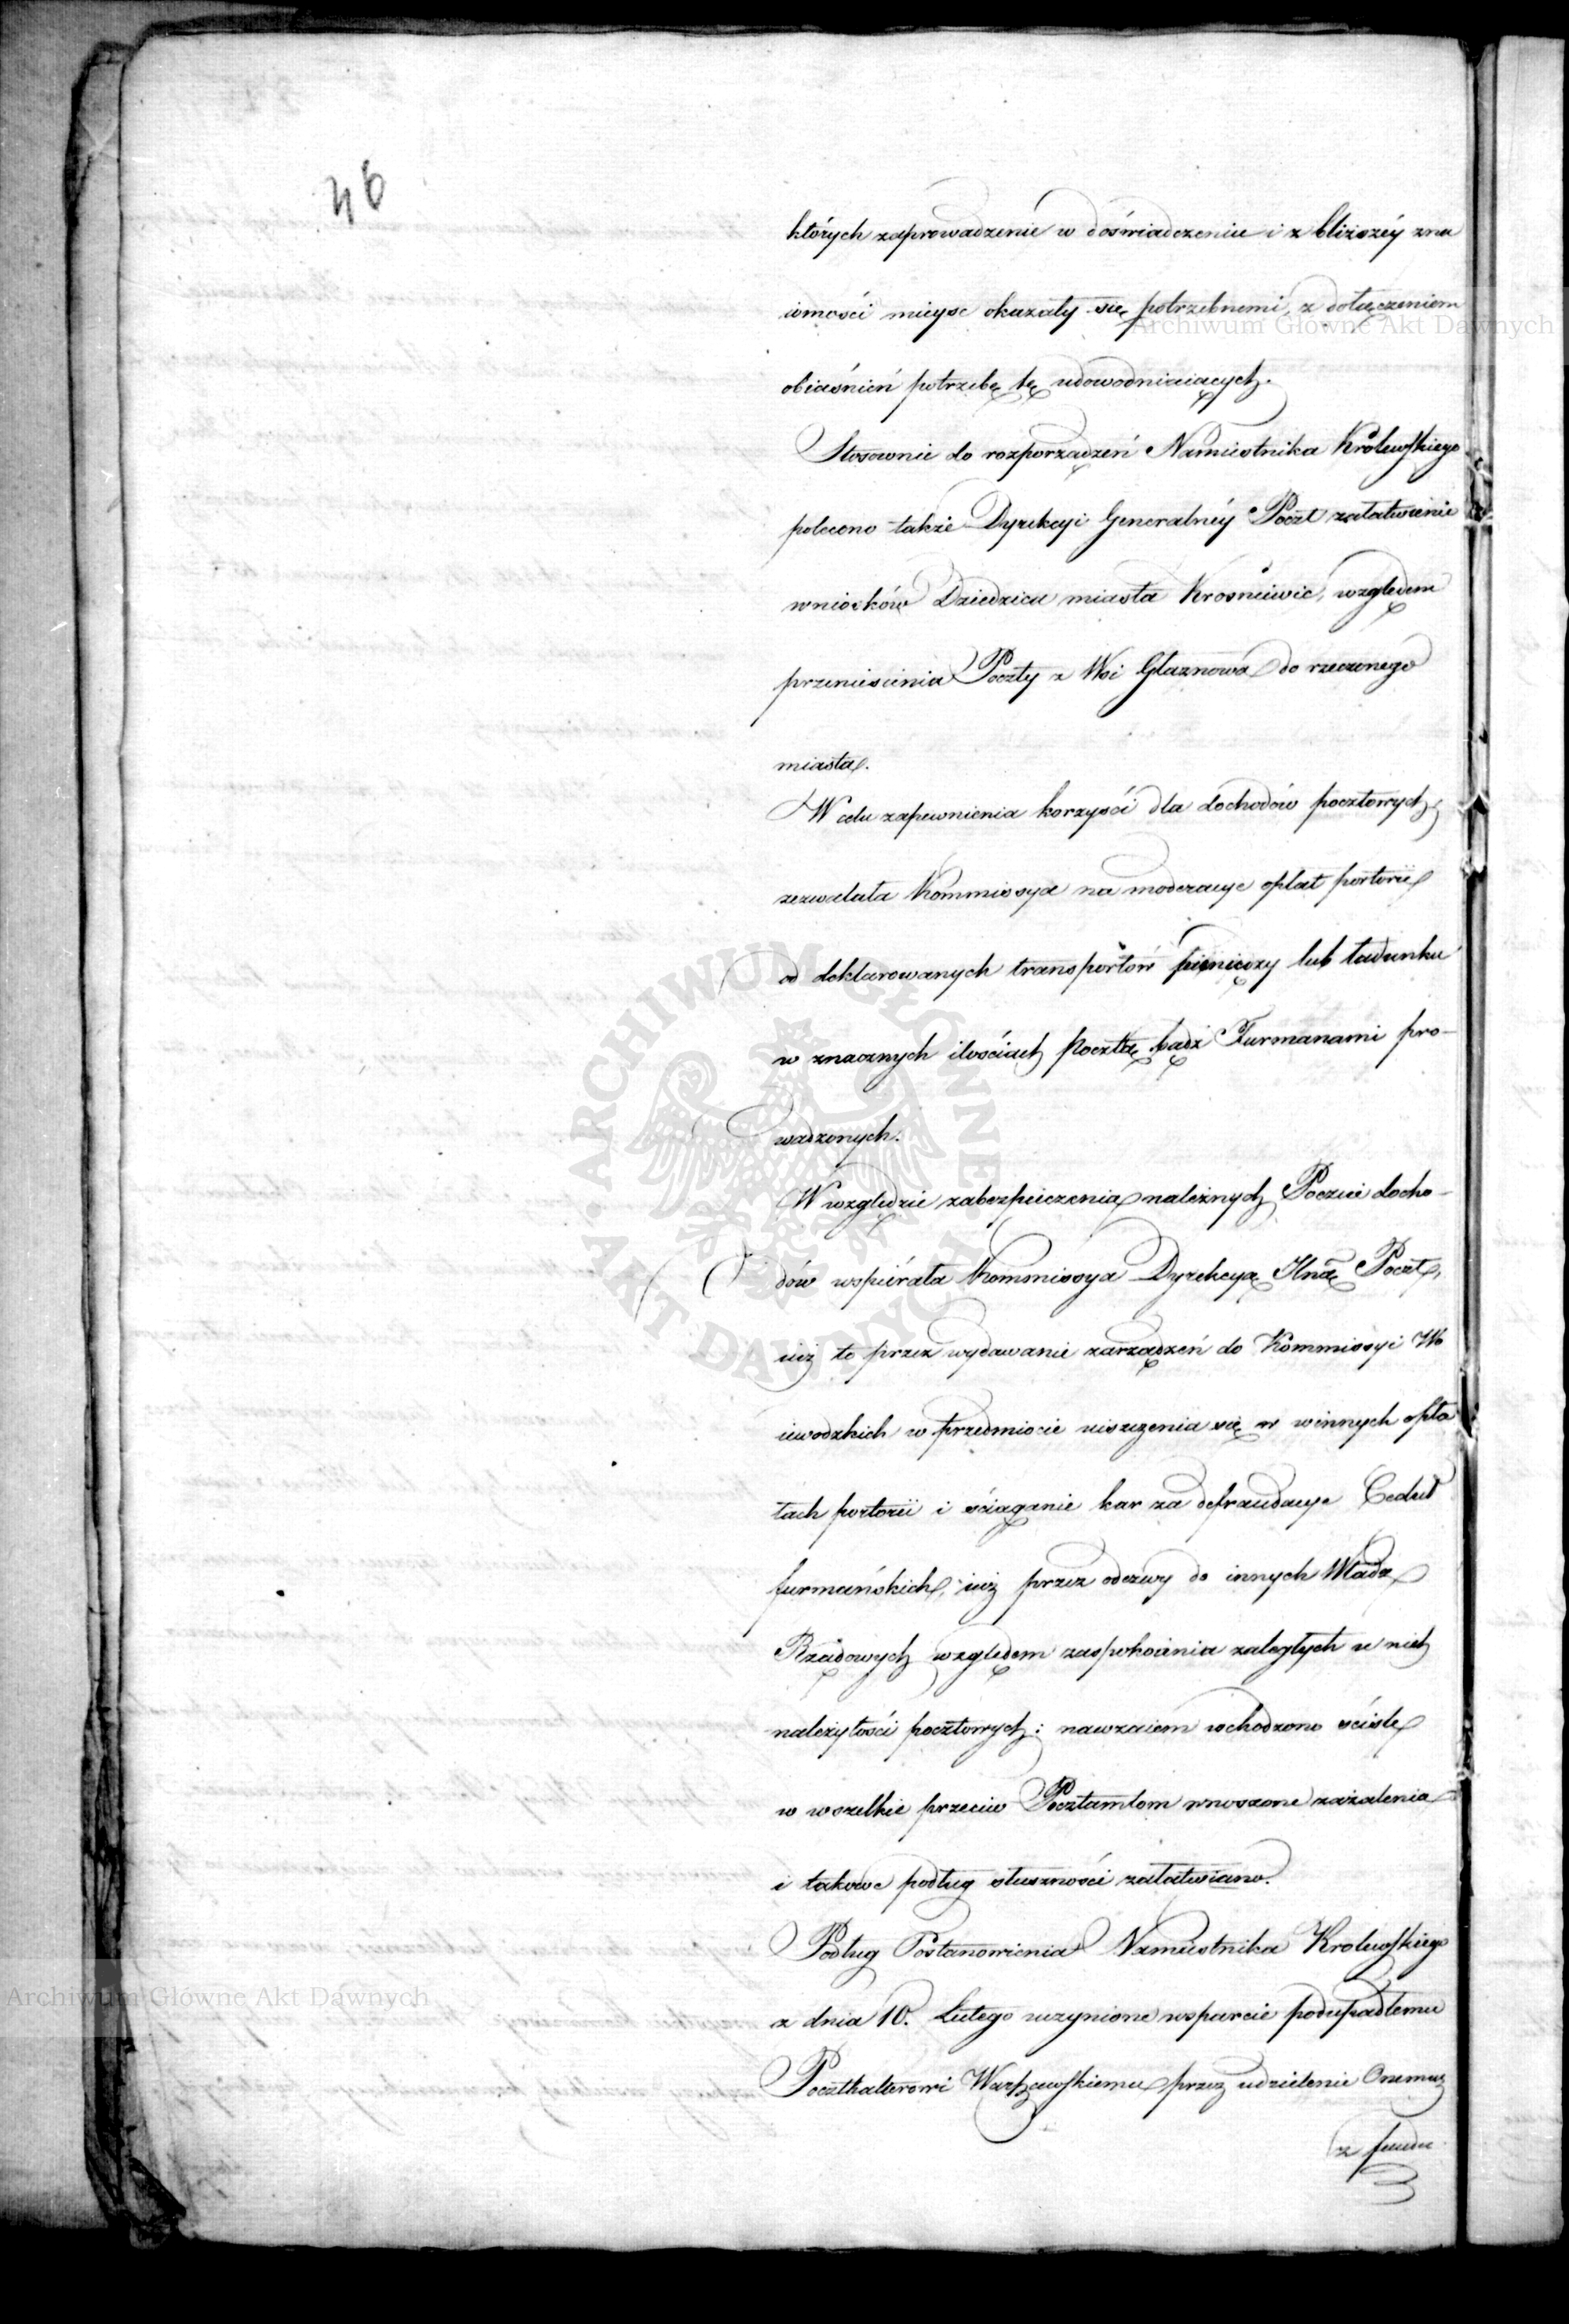 46
których zaprowadzenie w doświadczeniu i z bliższéy zna
iomości mieysc okazały się potrzebnemi, z dołączeniem
obiaśnień potrzebę tę udowodniaiących.
Stosownie do rozporządzeń Namiestnika Królewskiego
polecono także Dyrekcyi Generalnéy Poczt załatwienie
wniosków Dziedzica miasta Krosniewic, względem
przeniesienia Poczty z Wsi Głaznowa do rzeczonego
miasta.
W celu zapewnienia korzyści dla dochodów pocztowych,
zezwalała Kommissya na moderacye opłat portorii
od deklarowanych transportów pieniędzy lub ładunku
w znacznych ilościach Pocztą bądź Furmanami pro-
wadzonych.
W względzie zabezpieczenia należnych Poczcie docho-
dów wspiérała Kommissya Dyrekcyą Jlną Poczt,
iuż to przez wydawanie zarządzeń do Kommissyi Wo
iewodzkich w przedmiocie uiszczenia się w winnych opła
tach portorii i ściąganie kar za defraudacye Ceduł
furmańskich, iuż przez odezwy do innych Władz
Rządowych względem zaspokoienia zaległych u nich
należytości pocztowych: nawzaiem wchodzono ściśle
w wszelkie przeciw Pocztamtom wnoszone zażalenia
i takowe podług słuszności załatwiano.
Podług Postanowienia Namiestnika Krolewskiego
z dnia 10. Lutego uczynione wsparcie podupadłemu
Poczthalterowi Warszawskiemu przez udzielenie Onemuż
z fundu
Archiwum Główne Akt Dawnych
Archiwum Główne Akt Dawnych
ARCHIWUM GŁÓWNE · AKT DAWNYCH ·